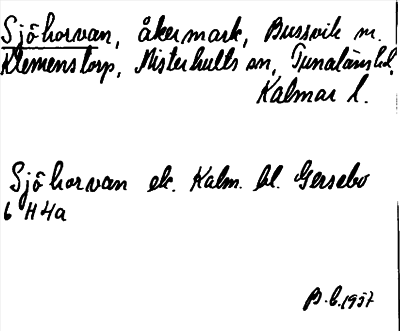 Sjöhorvan, åkermark, Bussvik m.
Klemenstorp, Misterhults sn, Tunaläns hd,
Kalmar l.
Sjöhorvan ek. Kalm. bl. Gersebo
6 H 4a
B.C. 1957